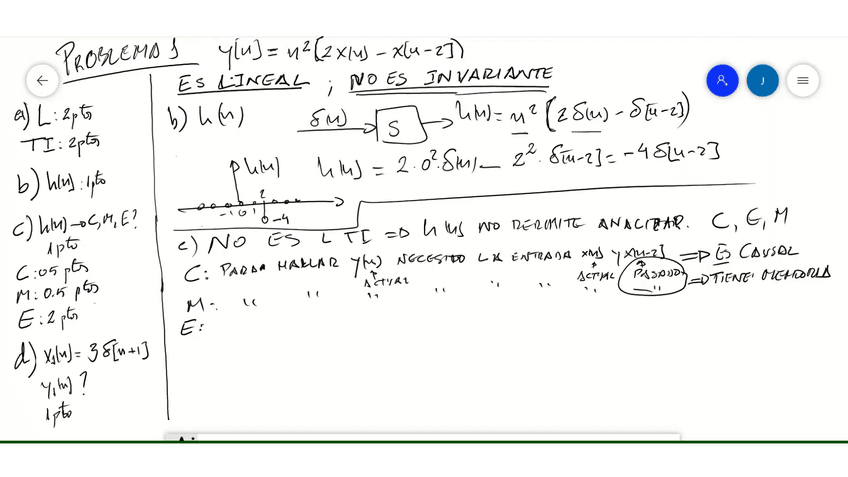 PROBLEMA 1
y[n] = n²(2x[n] - x[n-2])
ES LINEAL ; NO ES INVARIANTE
a) L: 2pts
TI: 2pts
b) h[n]: 1pto
c) h[n] → C, M, E?
1pto
C: 0.5 pts
M: 0.5 pts
E: 2 pts
d) x₁[n] = 3δ[n+1]
y₁[n]?
1pto
b) h[n]
δ[n] → S → h[n] = n²(2δ[n] - δ[n-2])
h[n]
h[n] = 2·0²·δ[n] - 2²·δ[n-2] = -4δ[n-2]
-1 0 1 2
-4
c) NO ES LTI => h[n] NO PERMITE ANALIZAR. C, E, M
C: PARA HALLAR y[n] NECESITO LA ENTRADA x[n] y x[n-2] => ES CAUSAL
ACTUAL ACTUAL PASADO
M: " " " " " " " " => TIENE MEMORIA
E:
J